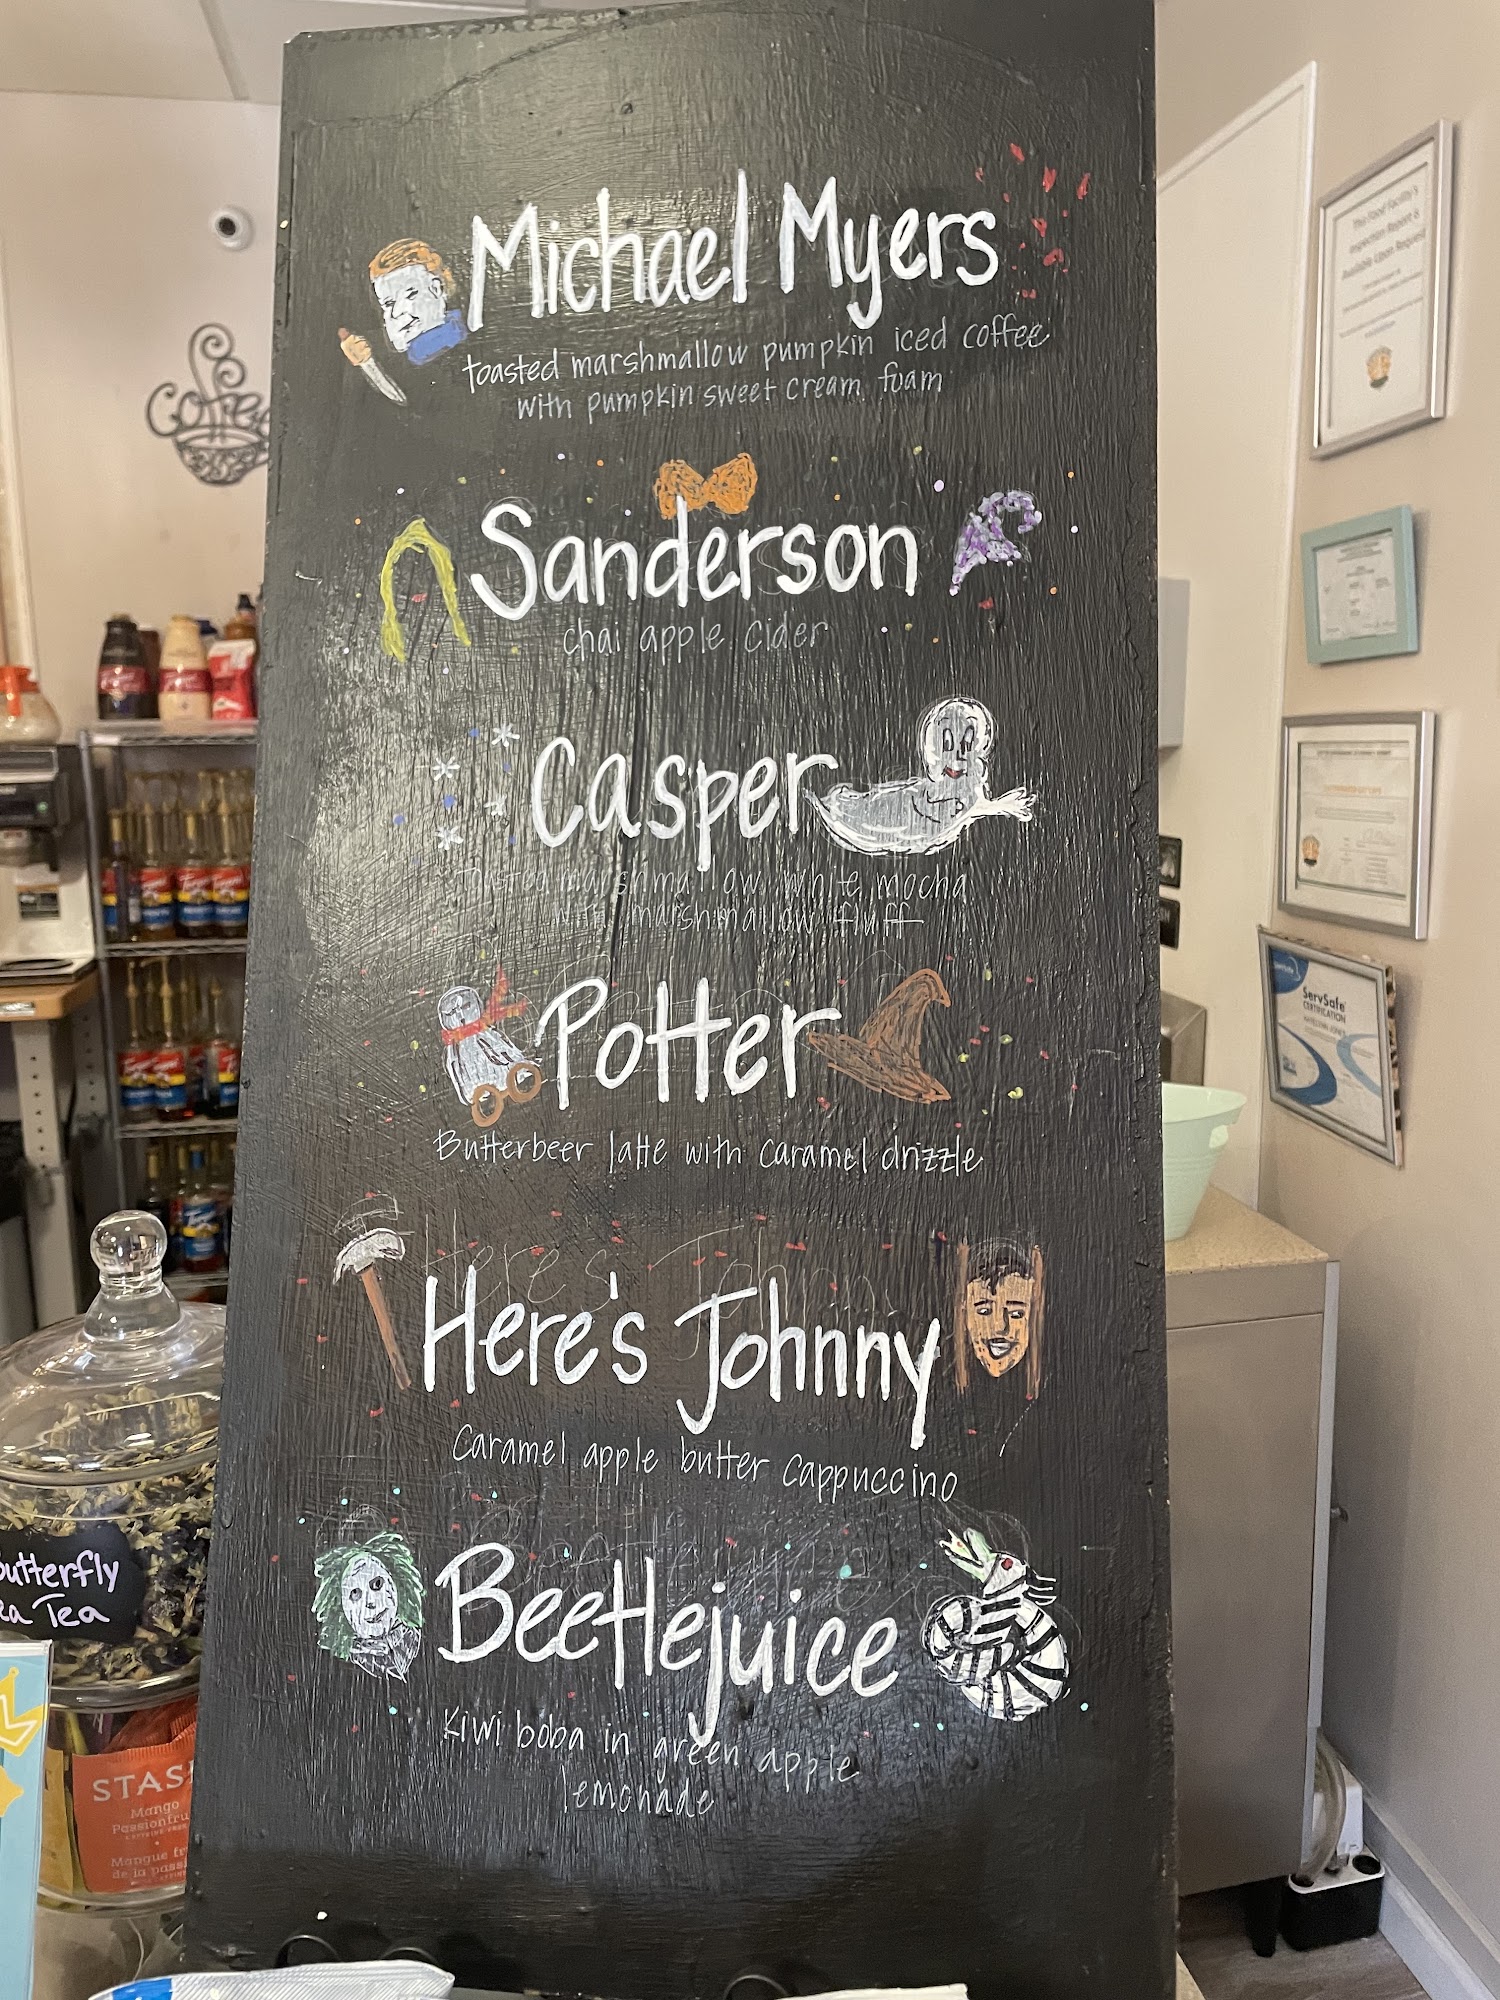 Michael Myers
toasted marshmallow pumpkin iced coffee
with pumpkin sweet cream foam
Sanderson
chai apple cider
Casper
toasted marshmallow white mocha
with marshmallow fluff
Potter
Butterbeer latte with caramel drizzle
Here's John
Here's Johnny
Caramel apple butter cappuccino
Beetlejuice
Kiwi boba in green apple
lemonade
Coffee
Butterfly
Tea
STAS
Mango
Passionfru
Mangue
de la pass
This Food Facility's
Inspection Report is
Available Upon Request
ServSafe
CERTIFICATION